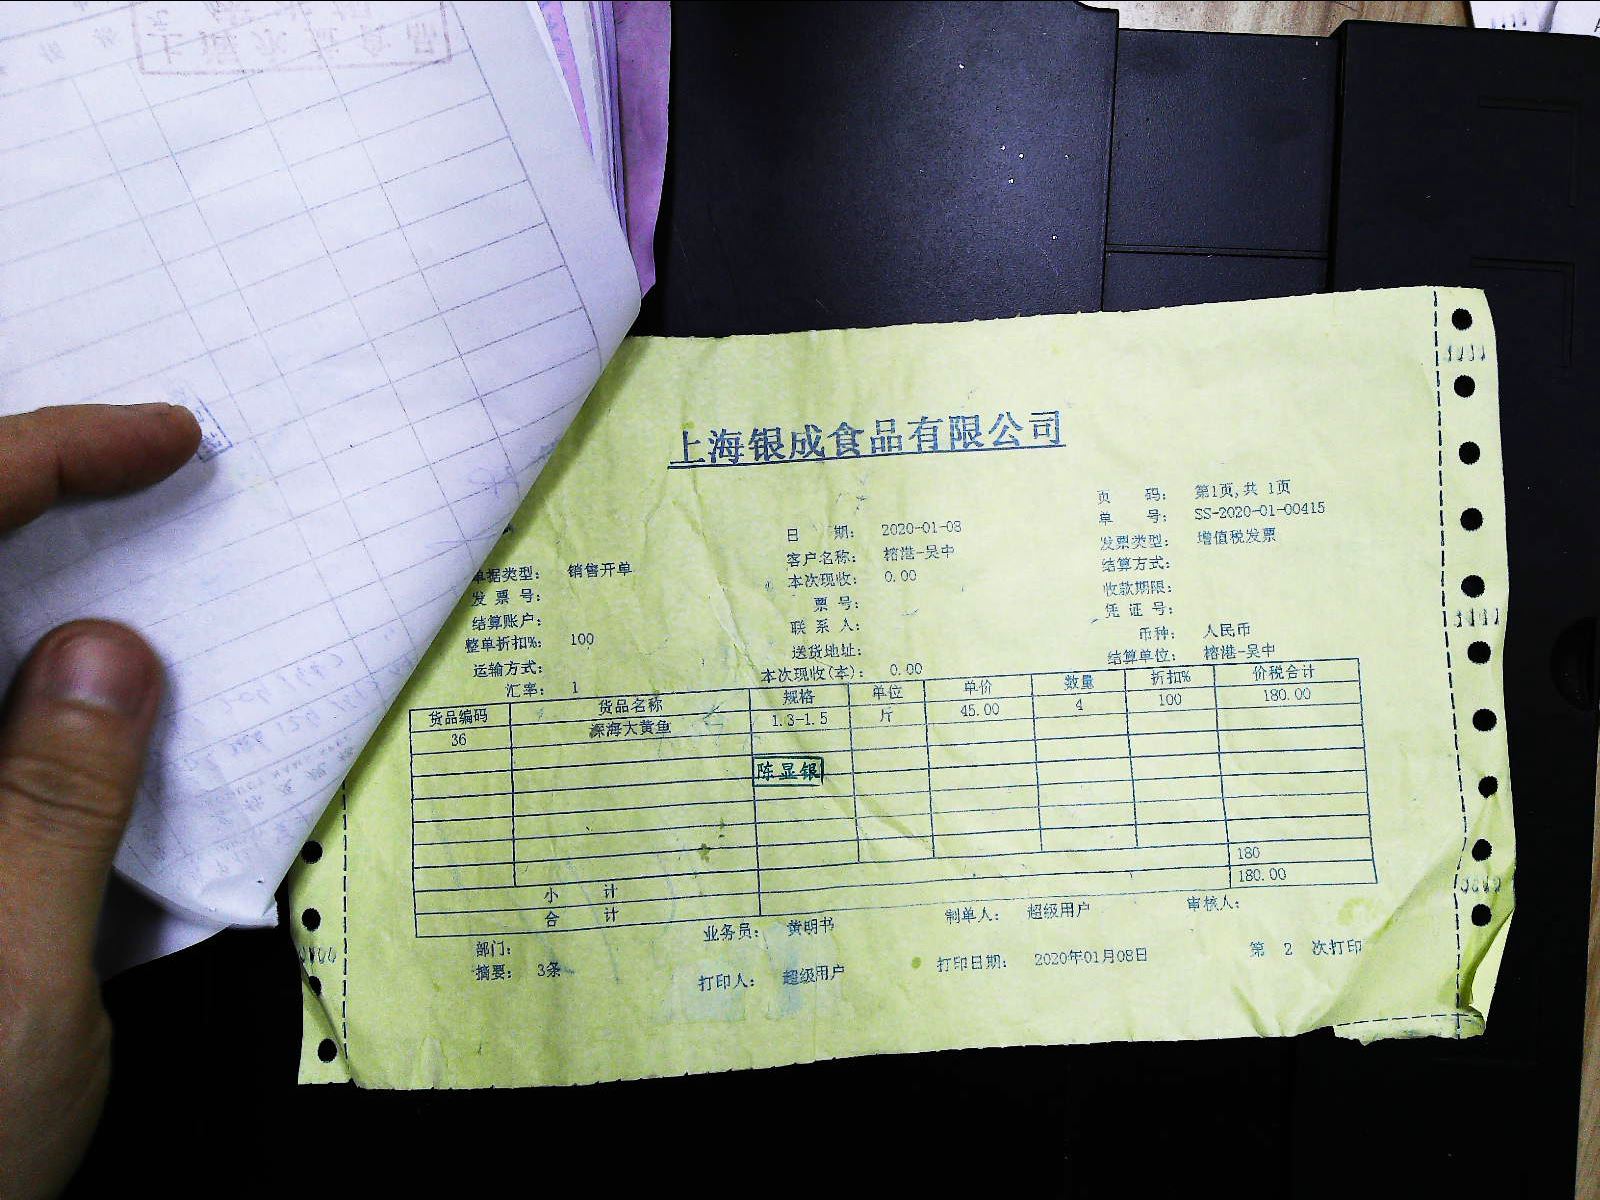 上海银成食品有限公司
页 码: 第1页,共 1页
日 期: 2020-01-08 单 号: SS-2020-01-00415
单据类型: 销售开单 客户名称: 榕港-吴中 发票类型: 增值税发票
发 票 号: 本次现收: 0.00 结算方式:
结算账户: 票 号: 收款期限:
整单折扣%: 100 联 系 人: 凭 证 号:
运输方式: 送货地址: 币种: 人民币
汇率: 1 本次现收(本): 0.00 结算单位: 榕港-吴中
货品编码 货品名称 规格 单位 单价 数量 折扣% 价税合计
36 深海大黄鱼 1.3-1.5 斤 45.00 4 100 180.00
陈显银
小 计 180
合 计 180.00
部门: 业务员: 黄明书 制单人: 超级用户 审核人:
摘要: 3条 打印人: 超级用户 打印日期: 2020年01月08日 第 2 次打印